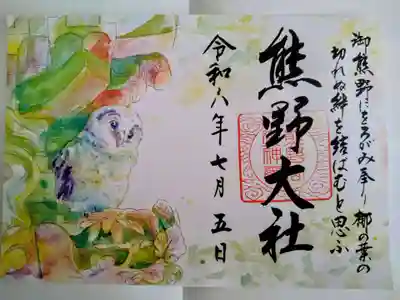 御熊野にをろがみ奉り梛の葉の
切れぬ絆を結ばむと思ふ
熊野大社
令和八年七月五日